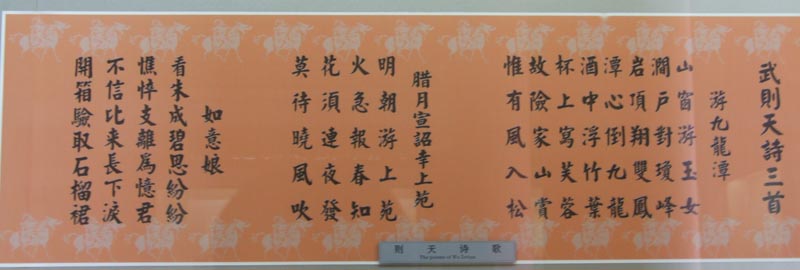 武則天詩三首
游九龍潭
山窗游玉女
澗戶對瓊峰
岩頂翔雙鳳
潭心倒九龍
酒中浮竹葉
杯上寫芙蓉
故險家山賞
惟有風入松
腊月宣詔幸上苑
明朝游上苑
火急報春知
花須連夜發
莫待曉風吹
如意娘
看朱成碧思紛紛
憔悴支離為憶君
不信比来長下淚
開箱驗取石榴裙
则天诗歌
The poems of Wu Zetian